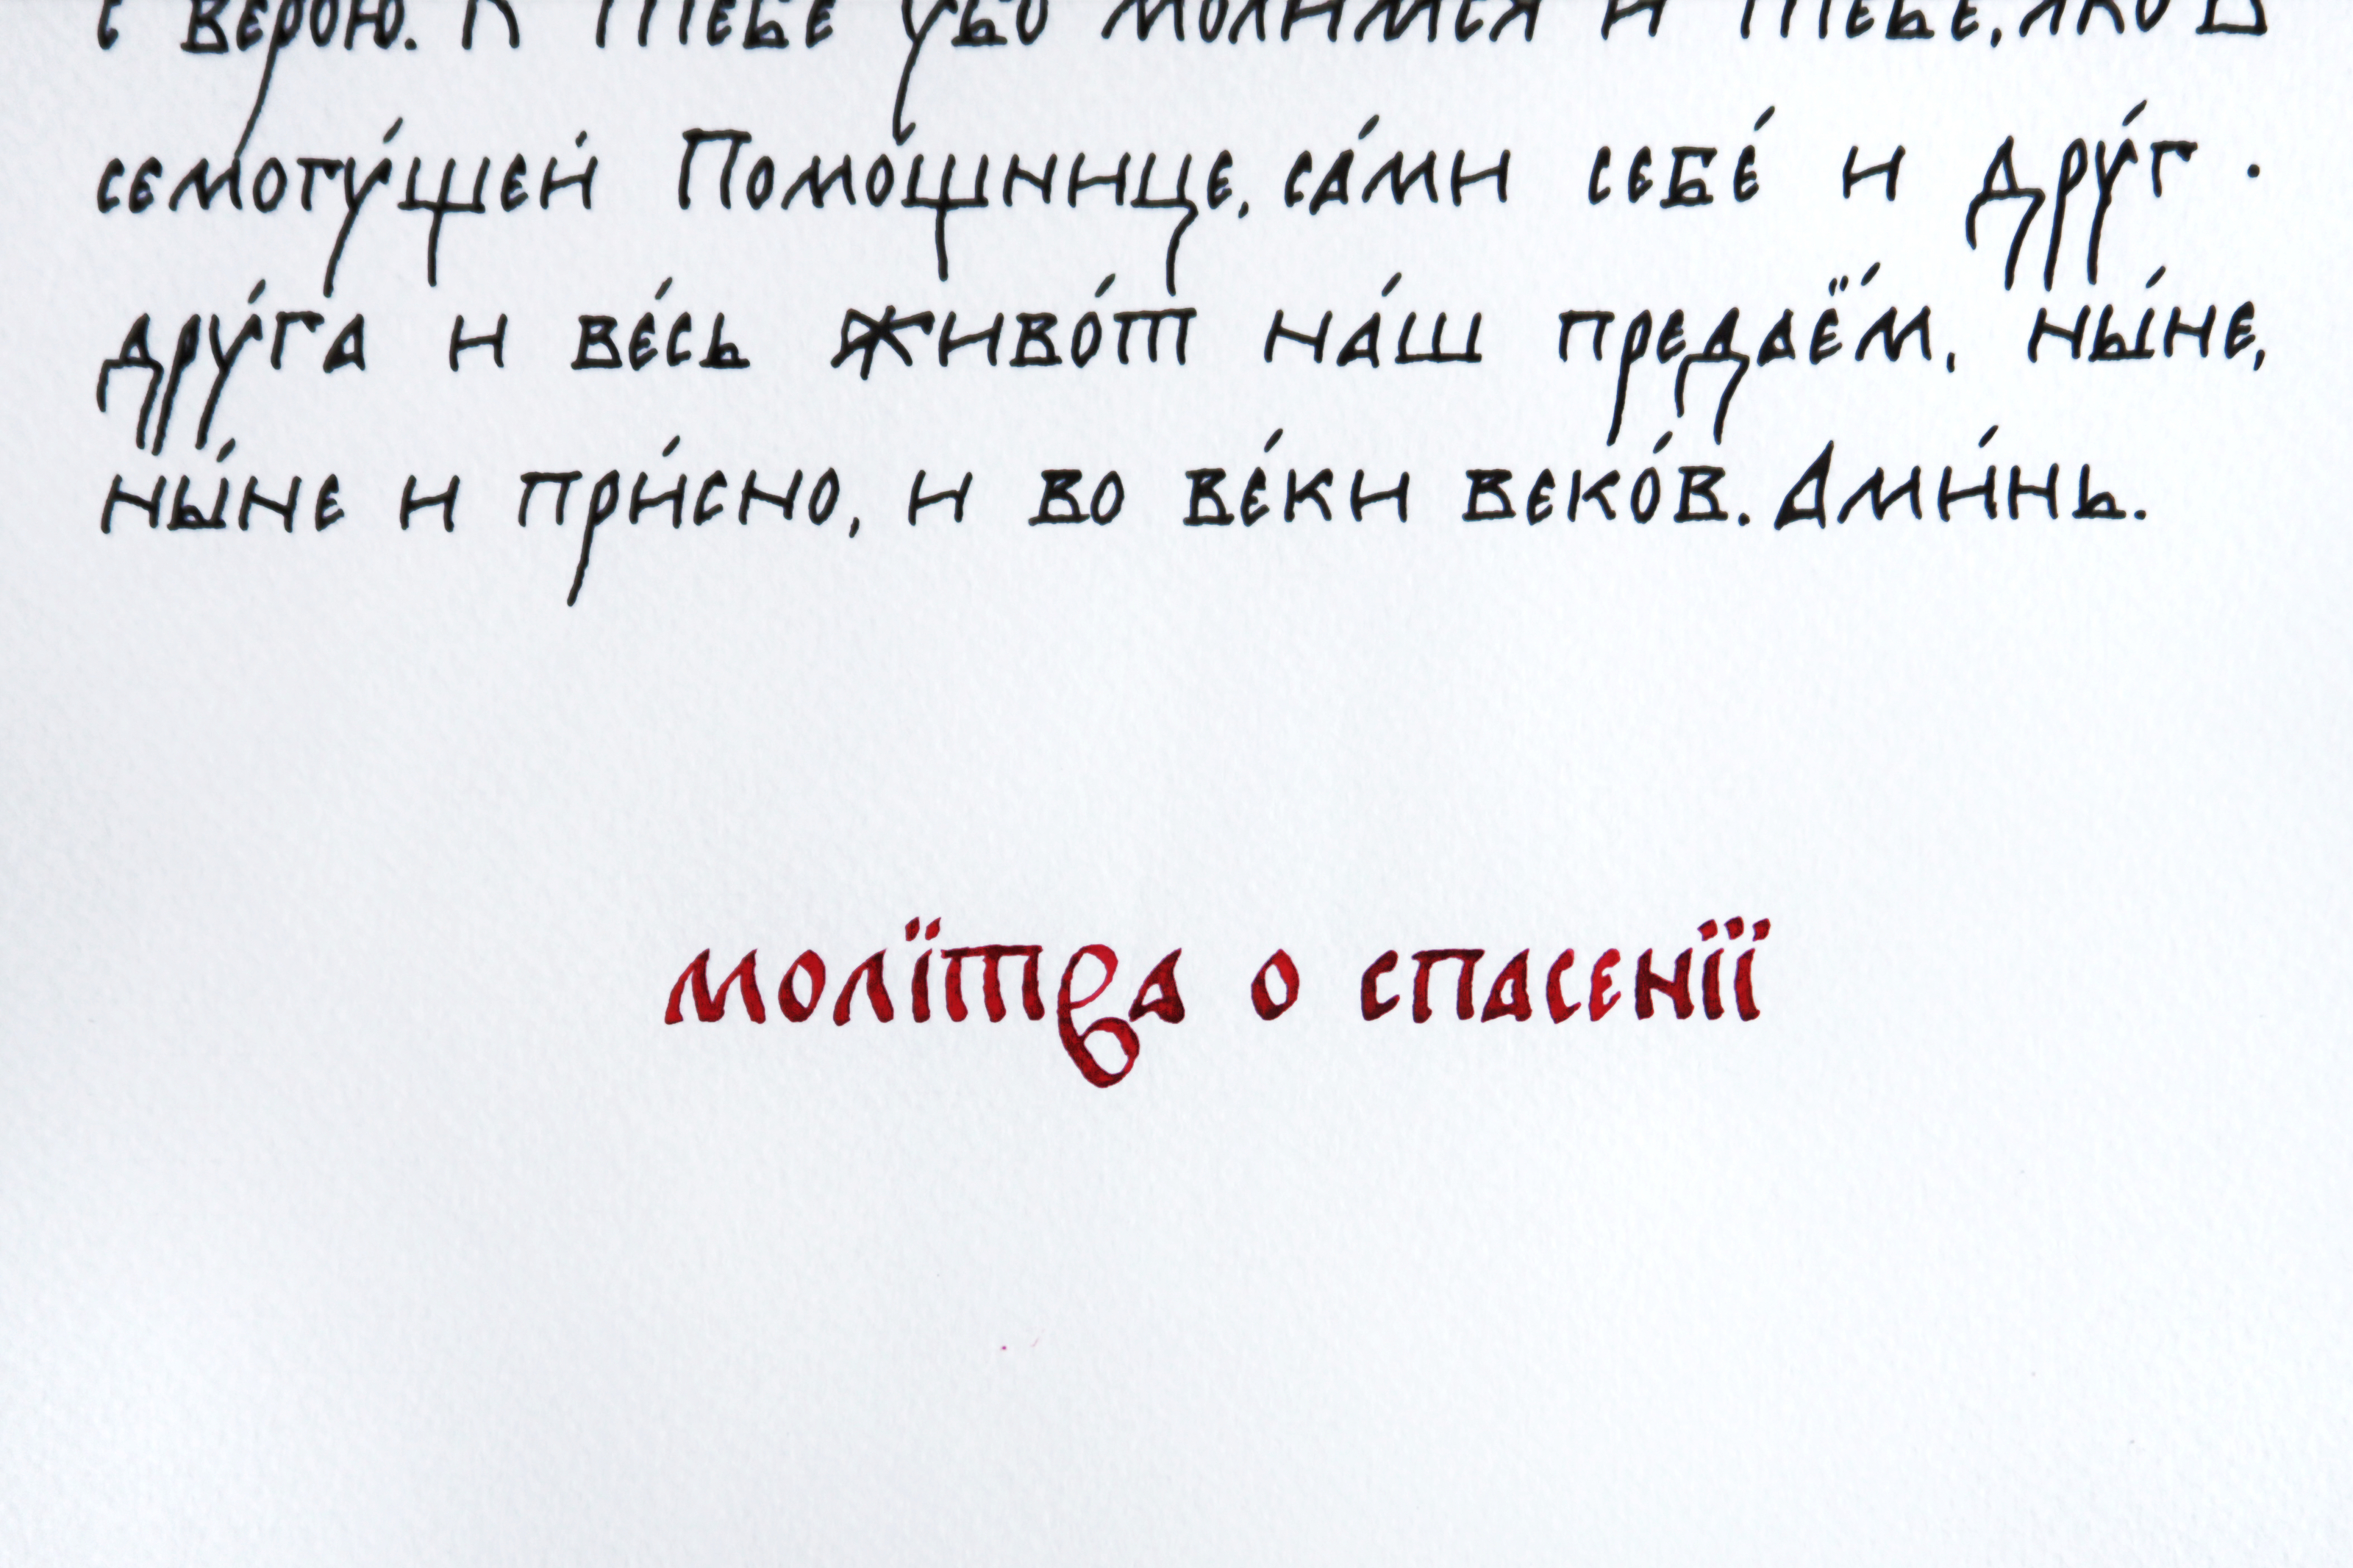 с верою. К Тебе убо молимся и Тебе, яко В
семогу́щей Помо́щнице, са́ми себе́ и дру́г ·
дру́га и ве́сь живо́т на́ш предаё́м, ны́не,
ны́не и при́сно, и во ве́ки веко́в. Ами́нь.
молїтва о спасенїї